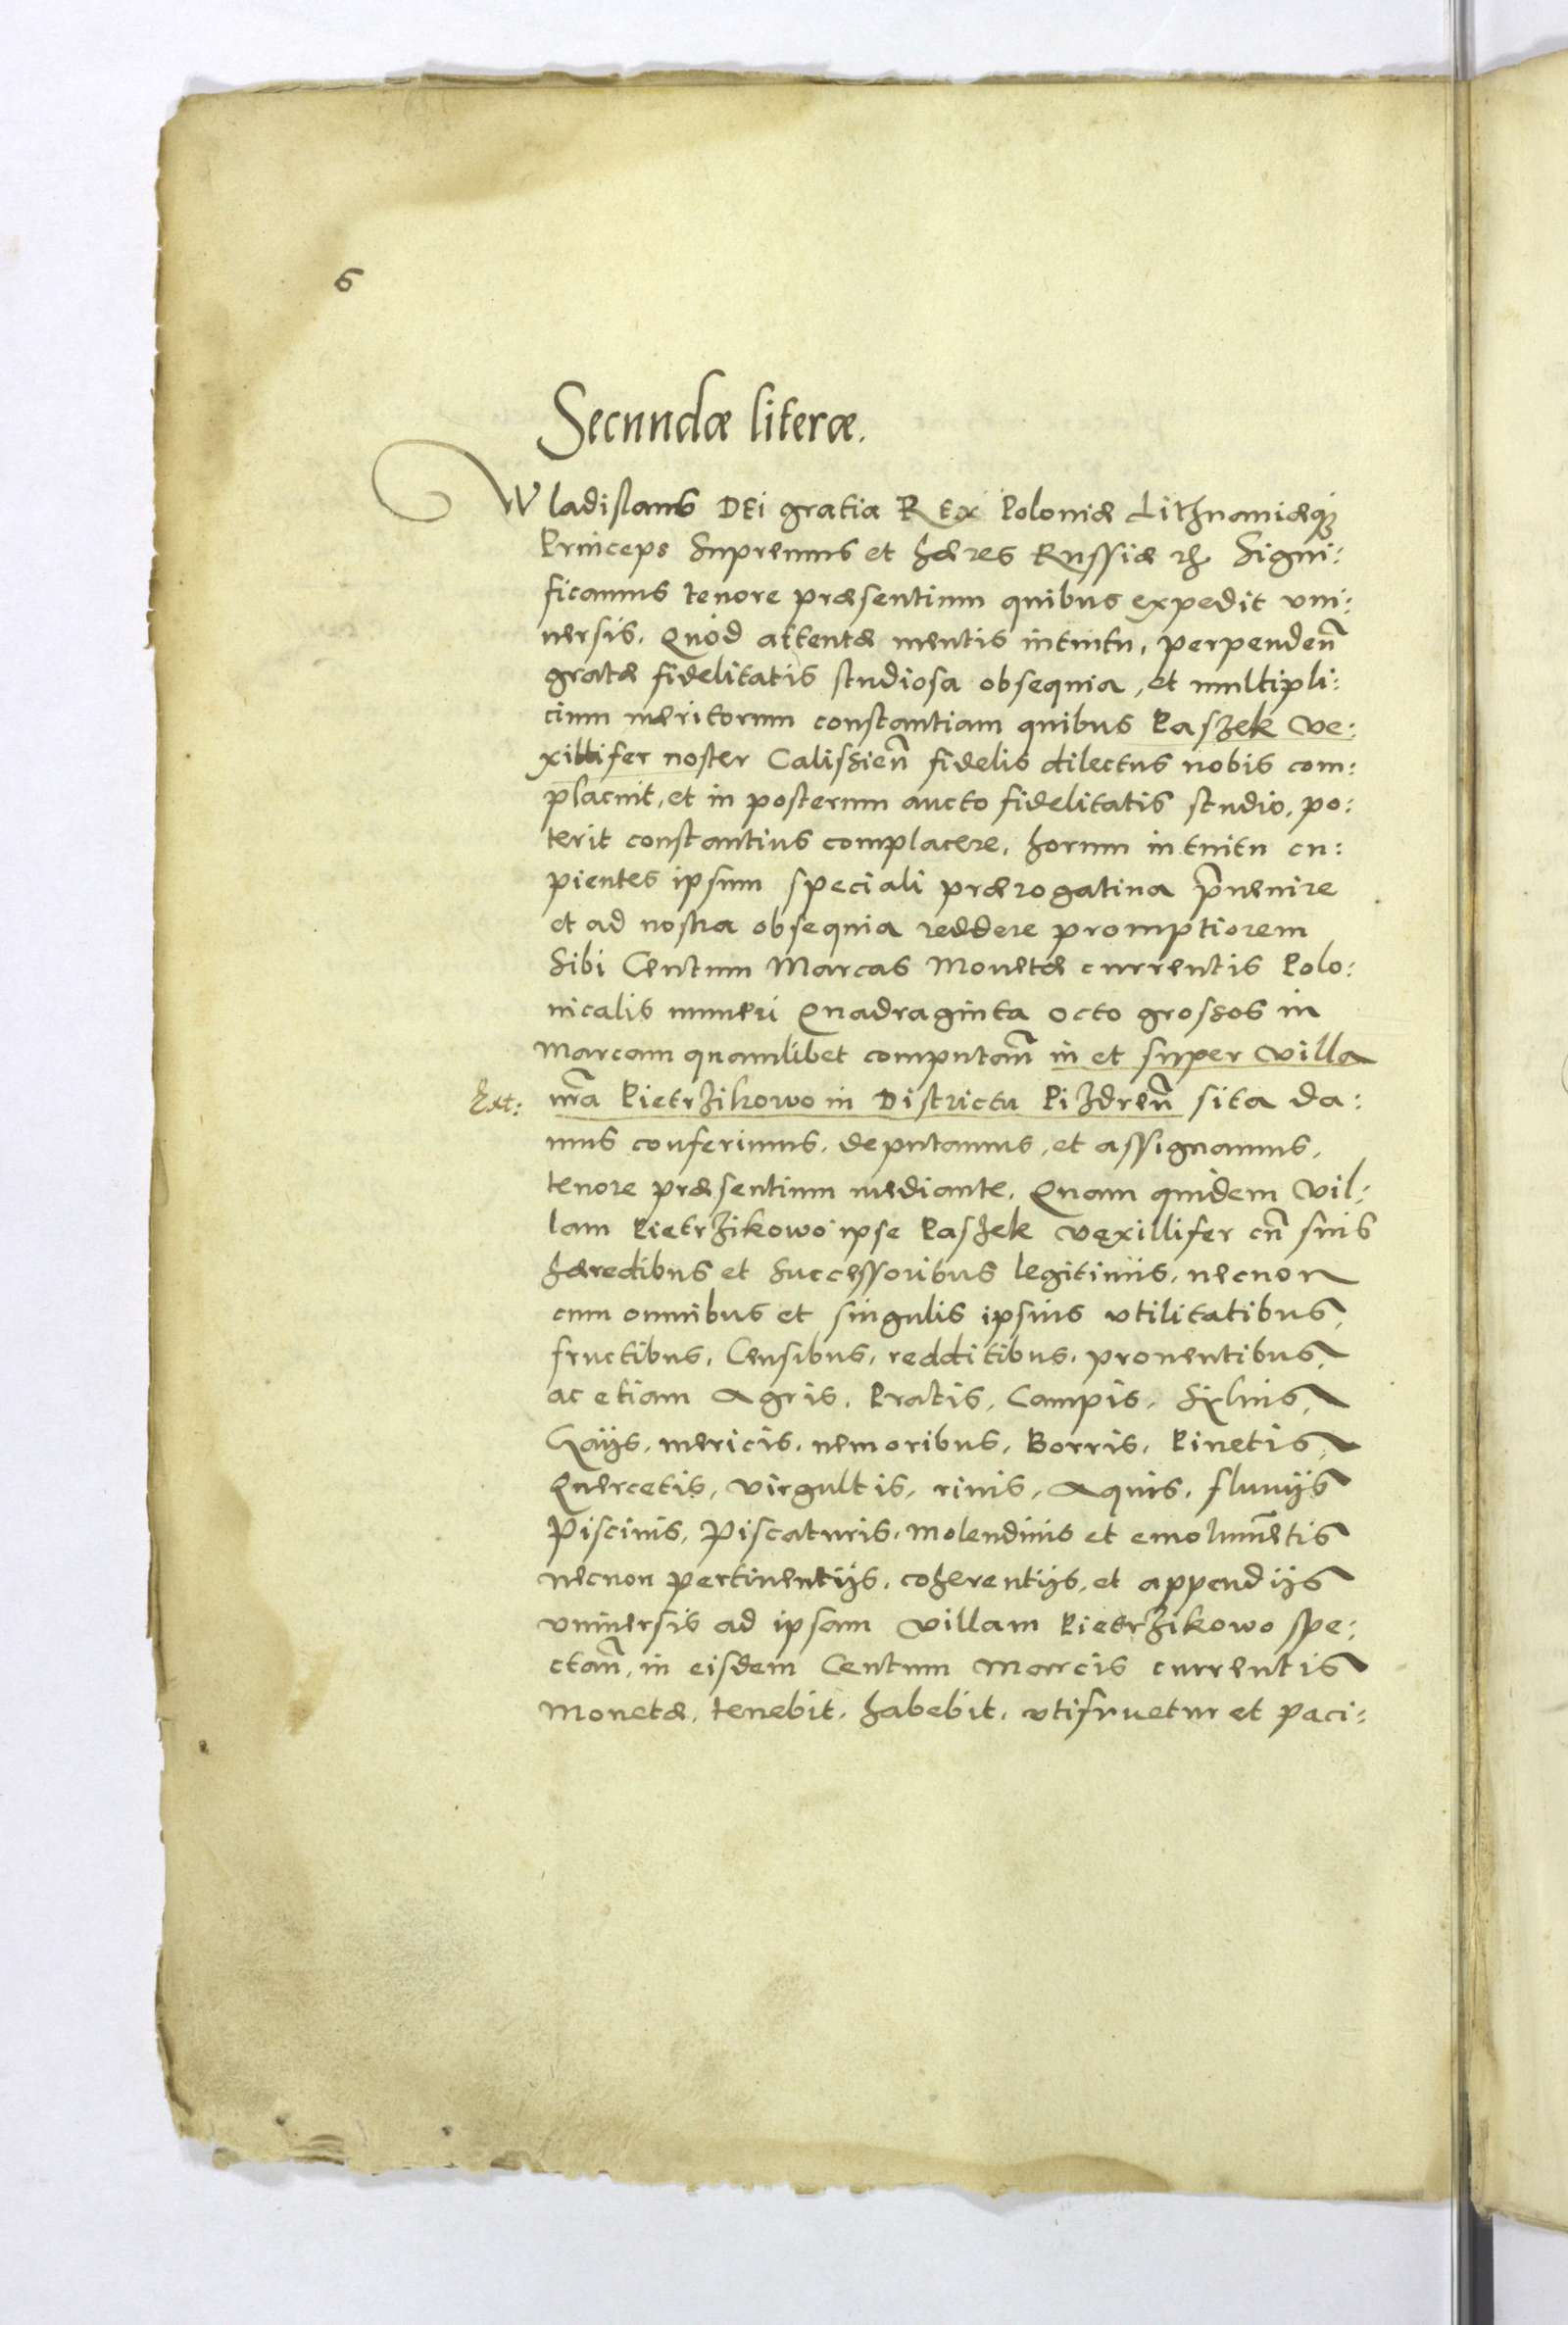 6
Secundæ literæ.
Wladislaus DEi gratia REx Poloniæ Lithuaniæq;
Princeps Supremus et hæres Russiæ etc. Signi:
ficamus tenore præsentium quibus expedit vni:
uersis. Quòd attentæ mentis intuitu, perpendeñ
gratæ fidelitatis studiosa obsequia, et multipli:
cium meritorum constantiam quibus Paszek Ve:
xillifer noster Calissieñ fidelis dilectus nobis com:
placuit, et in posterum aucto fidelitatis studio, po:
terit constantius complacere, horum intuitu cu:
pientes ipsum speciali prærogatiua p̃uenire
et ad nostra obsequia reddere promptiorem
Sibi Centum Marcas Monetæ currentis Polo:
nicalis numeri Quadraginta octo grossos in
Marcam quamlibet computañ in et super villa
Ext:
nr̃a Pietrzikowo in Districtu Pizdreñ sita da:
mus conferimus, deputamus, et assignamus,
tenore præsentium mediante. Quam quidem Vil:
lam Pietrzikowo ipse Paszek vexillifer cũ suis
hæredibus et Successoribus legitimis, necnon
cum omnibus et singulis ipsius vtilitatibus,
fructibus, Censibus, redditibus, prouentibus,
ac etiam Agris, Pratis, Campis, Syluis,
Gaijs, mericis, nemoribus, Borris, Pinetis,
Quercetis, Virgultis, riuis, Aquis, fluuijs
Piscinis, Piscaturis, Molendinis et emolumẽtis
necnon pertinentijs, coherentijs, et appendijs
vniuersis ad ipsam villam Pietrzikowo spe:
ctañ, in eisdem Centum Marcis currentis
Monetæ, tenebit, habebit, vtifruetur et paci: